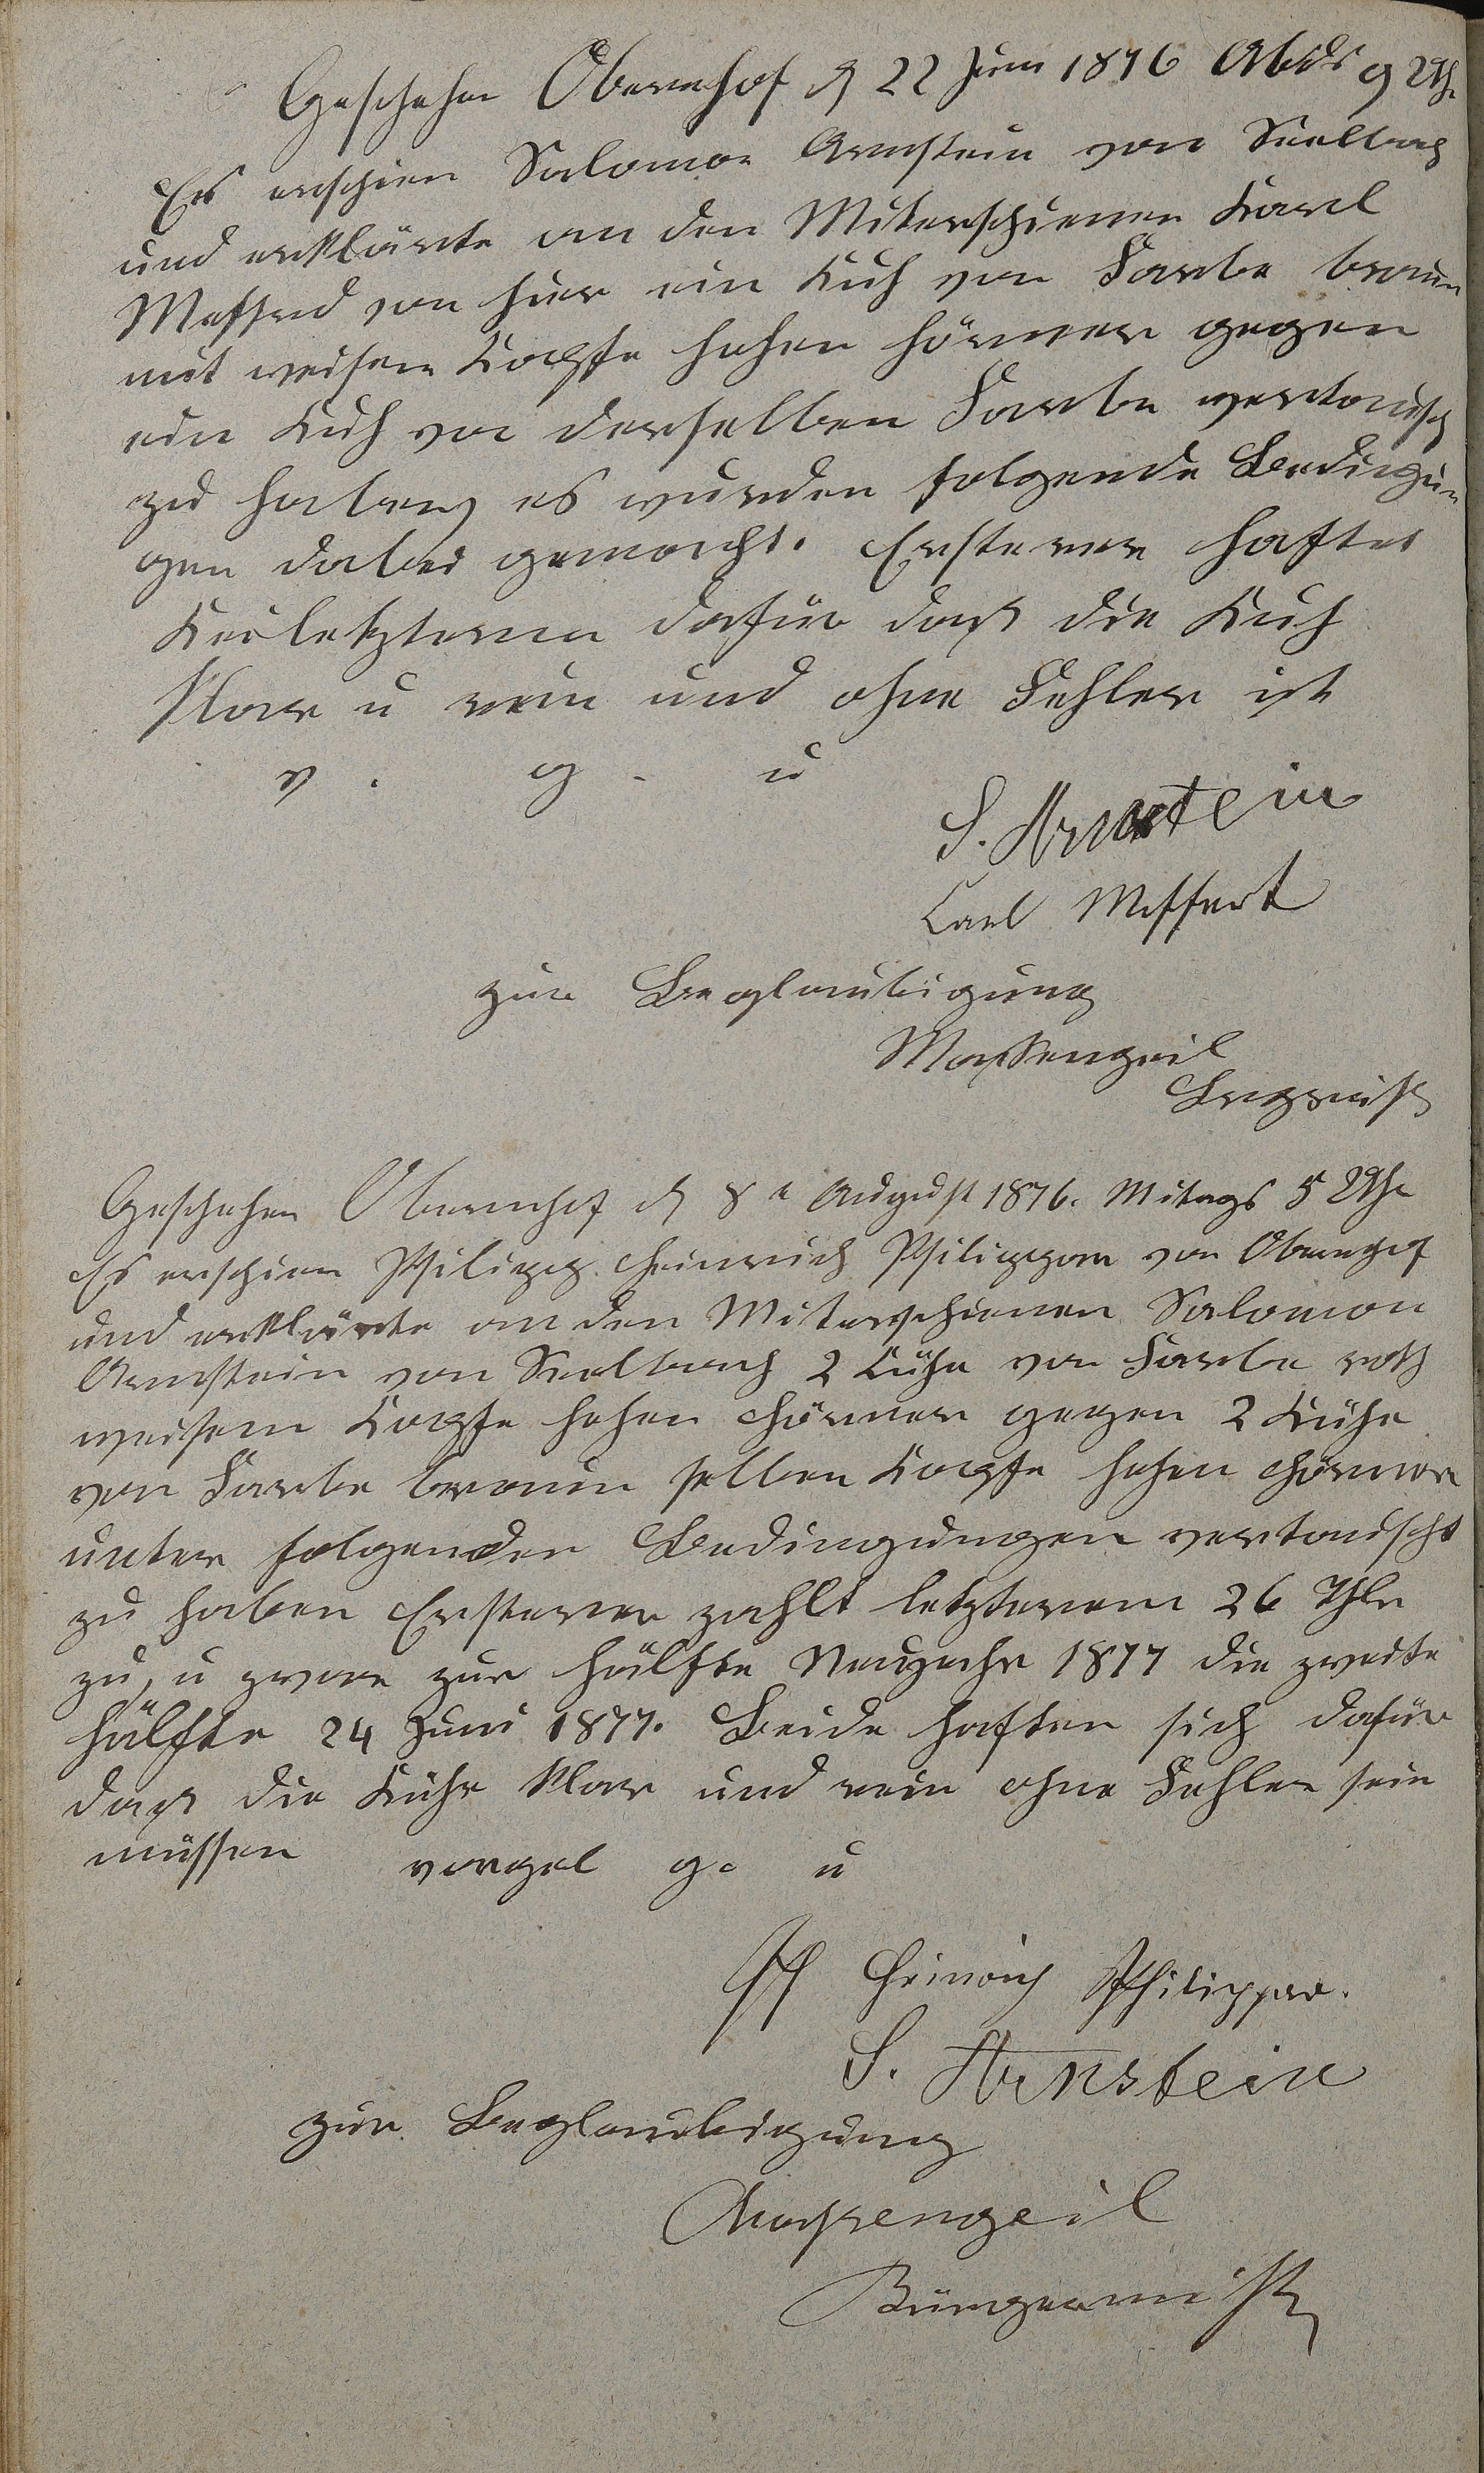 Geschehen Obernhof d 22 Juni 1876 Abds 9 Uh
Es erschien Salomon Arnstein von Seelbach
und erklärte an den Miterschienen Karl
Meffert von hier ein Kuh von Farbe braun
mit weisem Kopfe hohen Hörner gegen
ein Kuh von derselben Farbe vertausch
zu haben es wurden folgende Bedingun
gen dabei gemacht. Ersterer haftet
letzterem dafür daß die Kuh
klar u rein und ohne Fehler ist
v. g. u
S. Arnstein
Carl Meffert
zur Beglaubigung
Massengeil
Brgrmstr
Geschehen Obernhof d 8n August 1876. Mitags 5 Uhr
Es erschien Philipp Heinrich Philippar von Obernhof
und erklärte an den Miterschienen Salomon
Arnstein von Seelbach 2 Kühe von Farbe roth
weisem Kopfe hohen Hörner gegen 2 Kühe
von Farbe braun selben Kopfe hohen Hörner
unter folgenden Bedingungen vertauscht
zu haben Ersterer zahlt letzterem 26 Thlr
zu, u zwar zur Hälfte Neujahr 1877 die zweite
Hälfte 24 Juni 1877. Beide haften sich dafür
daß die Kühe klar und rein ohne Fehler sein
müssen vorgel g. u
Ph Heinrich Philippar.
S. Arnstein
zur Beglaubigung
Massengeil
Bürgermstr